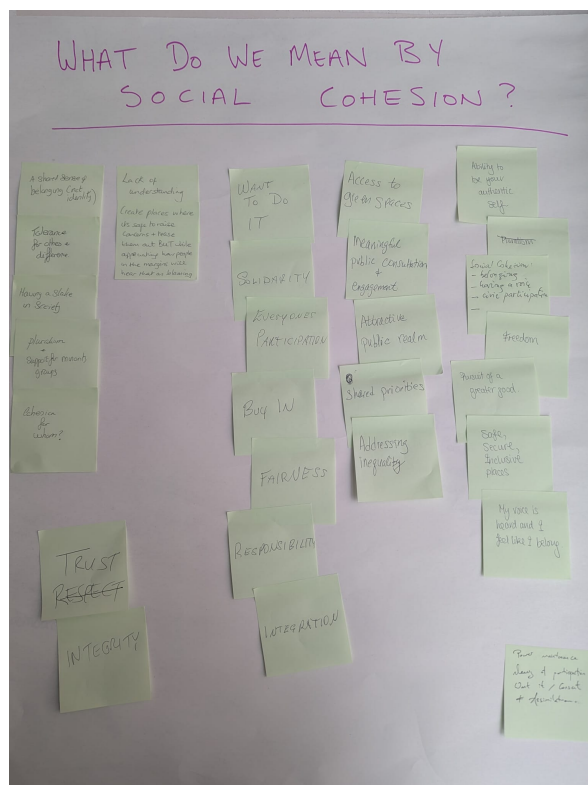 WHAT DO WE MEAN BY
SOCIAL COHESION?
A shared sense of
belonging (not
identity)
Tolerance
for others +
difference
Having a stake
in Society
pluralism
+
support for
groups
Cohesion
for
whom?
TRUST
RESPECT
INTEGRITY
Lack of
understanding
Create places where
to raise
concerns + tease
them out BUT while
appreciating how people
in the margins will
hear that as blaming
WANT
TO DO
IT
SOLIDARITY
EVERYONES
PARTICIPATION
BUY IN
FAIRNESS
RESPONSIBILITY
INTEGRATION
Access to
green spaces
Meaningful
public consultation
+
engagement
Attractive
public realm
Shared priorities
Addressing
inequality
Ability to
be your
authentic
self
Social Cohesion
- belonging
- having a role
- civic participation
Freedom
Pursuit of a
greater good
Safe,
Secure,
Inclusive
places
My voice is
heard and I
feel like I belong
Power
of participation